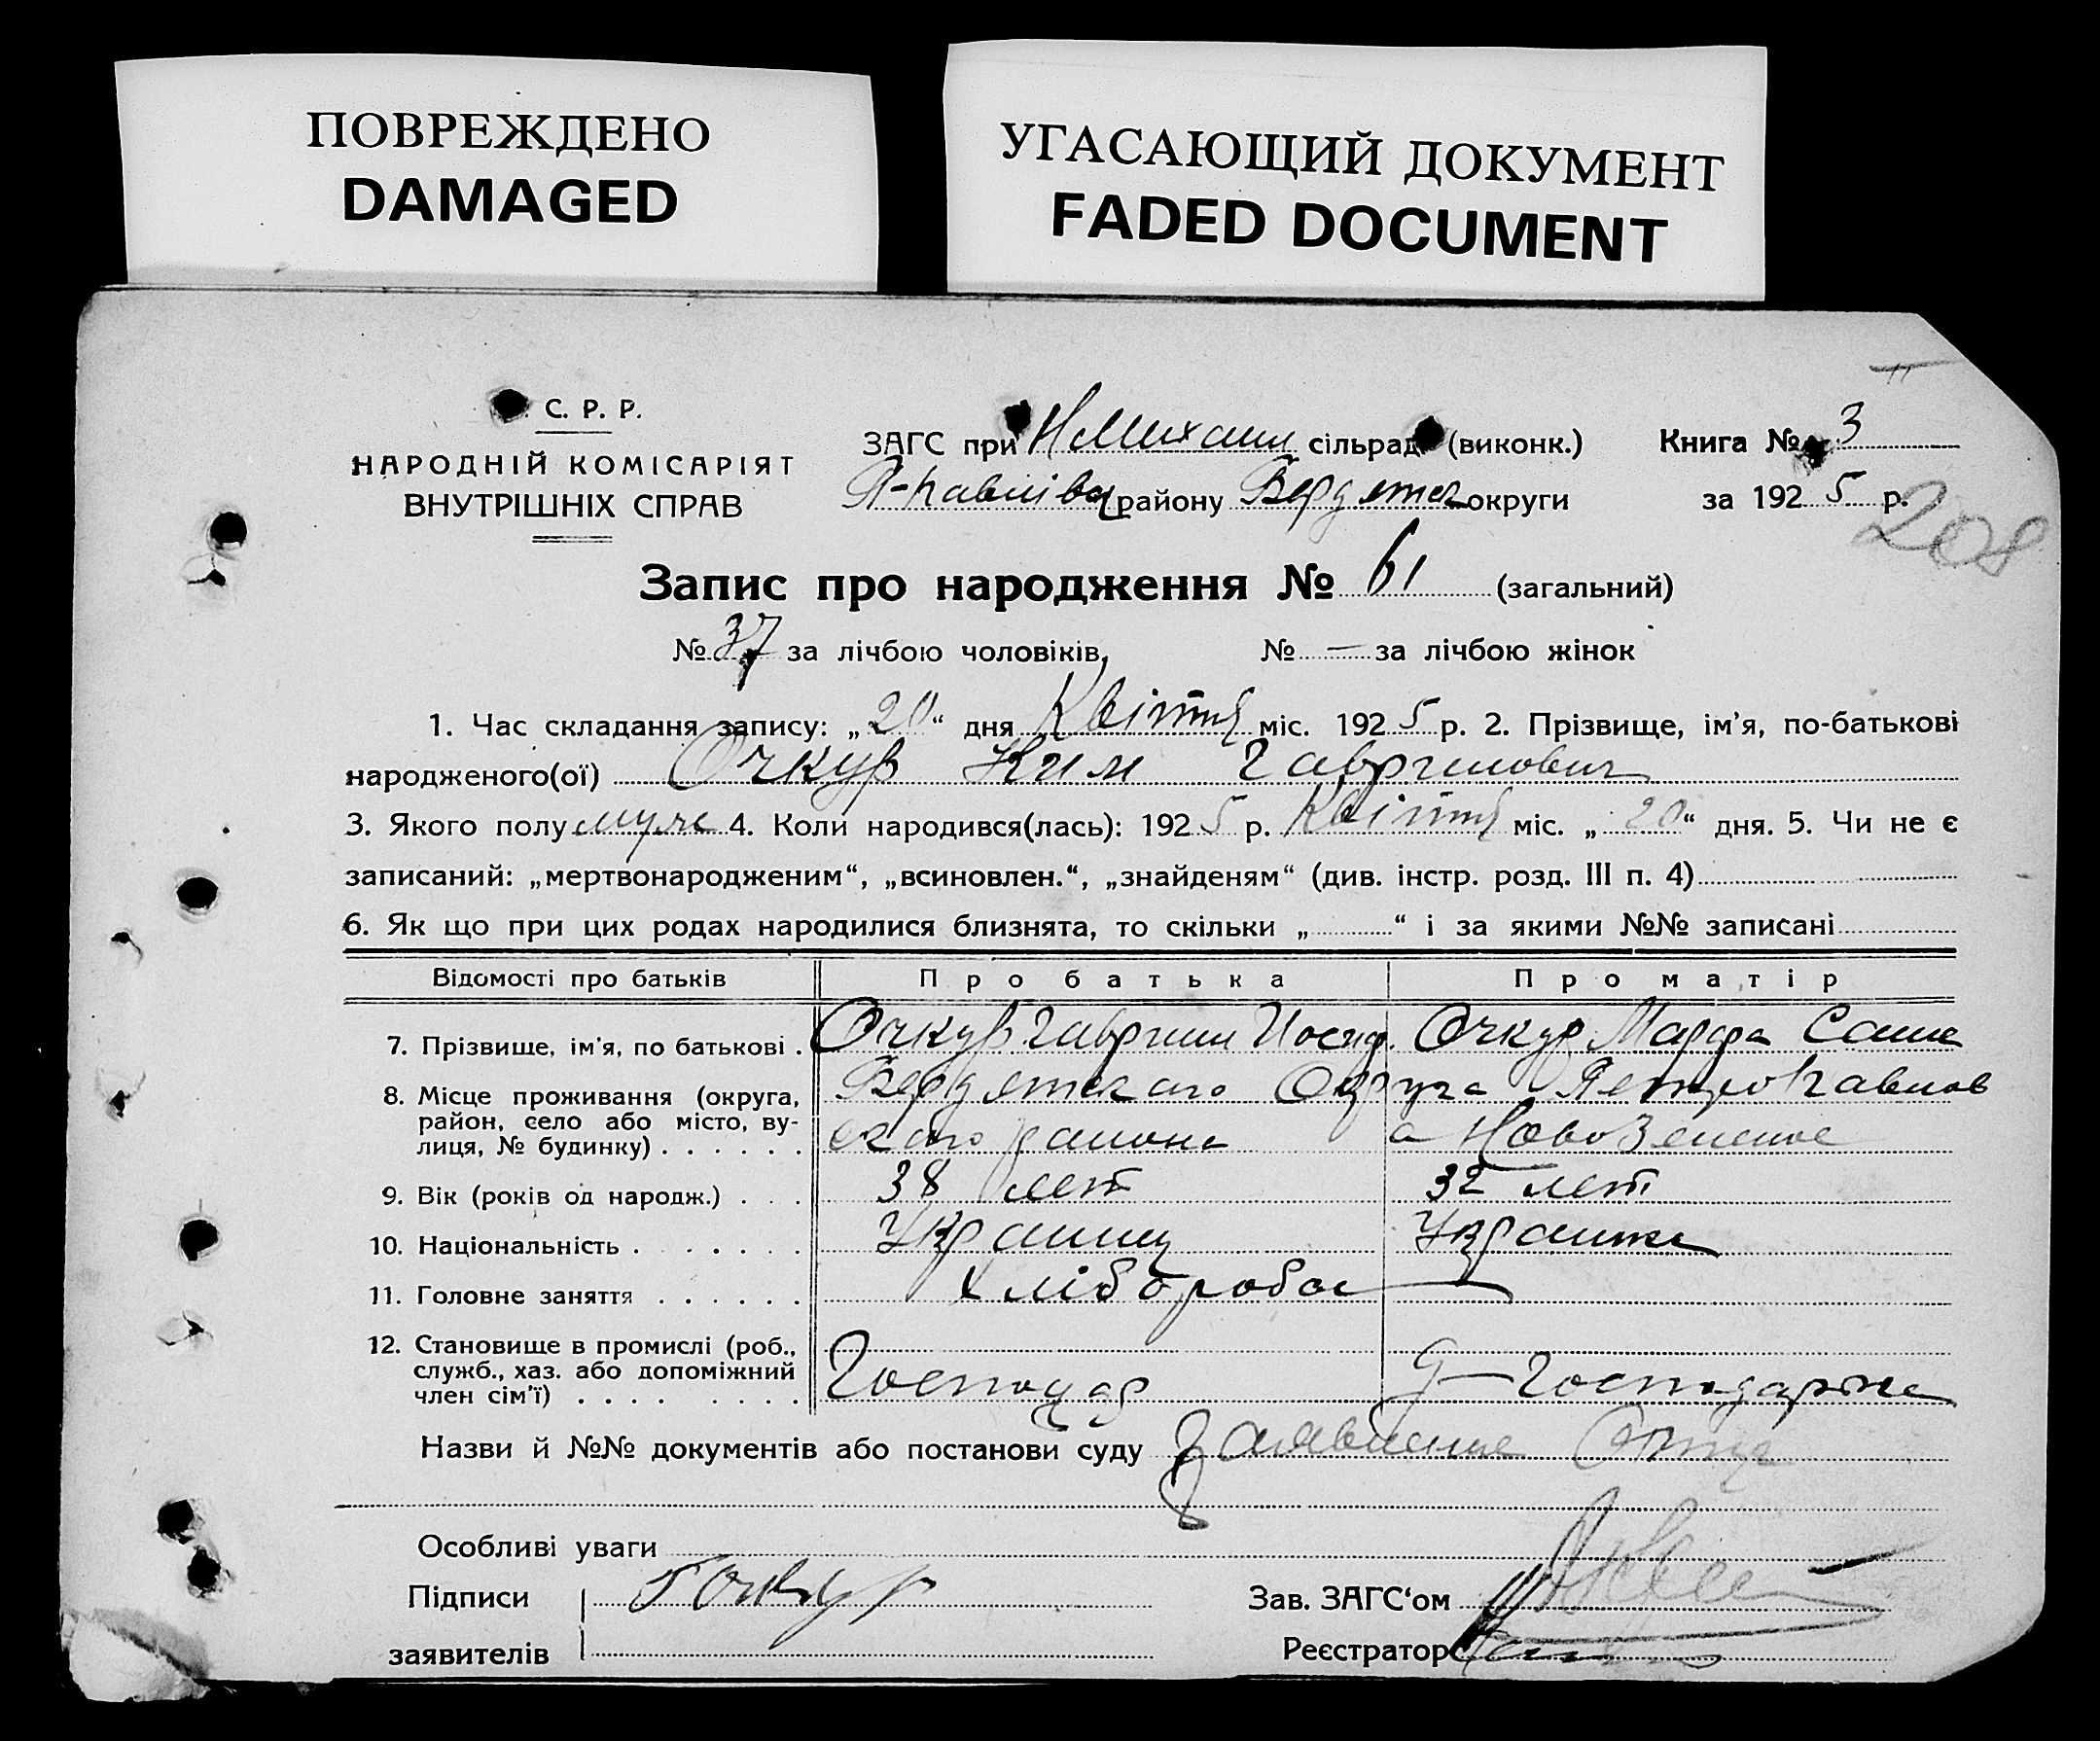 ПОВРЕЖДЕНО
DAMAGED
УГАСАЮЩИЙ ДОКУМЕНТ
FADED DOCUMENT
С. Р. Р.
НАРОДНІЙ КОМІСАРІЯТ
ВНУТРІШНІХ СПРАВ
ЗАГС при НМихаил сільрад (виконк.)
П-Павлівск району Бердянск округи
Книга № 3
за 1925 р.
208
Запис про народження № 61 (загальний)
№ 37 за лічбою чоловіків, № — за лічбою жінок
1. Час складання запису: „20“ дня Квітня міс. 1925 р. 2. Прізвище, ім'я, по-батькові
народженого(ої) Очкур Ким Гаврилович
3. Якого полу муж 4. Коли народився(лась): 1925 р. Квітня міс. „20“ дня. 5. Чи не є
записаний: „мертвонародженим“, „всиновлен.“, „знайденям“ (див. інстр. розд. III п. 4)
6. Як що при цих родах народилися близнята, то скільки „ “ і за якими №№ записані
Відомості про батьків Про батька Про матір
7. Прізвище, ім'я, по батькові . Очкур Гаврил Иосиф. Очкур Марфа
8. Місце проживання (округа, район, село або місто, вулиця, № будинку) . . . . . . Бердянскаго Округа Петропавлов
скаго района
9. Вік (років од народж.) . . . 38 лет 32 лет
10. Національність . . . . . . Украинец Украинка
11. Головне заняття . . . . . . Хлібороба
12. Становище в промислі (роб., служб., хаз. або допоміжний член сім'ї) . . . . . . . . Господар Господарка
Назви й №№ документів або постанови суду Заявление Отца
Особливі уваги
Підписи Г Очкур
заявителів
Зав. ЗАГС‘ом
Реєстратор